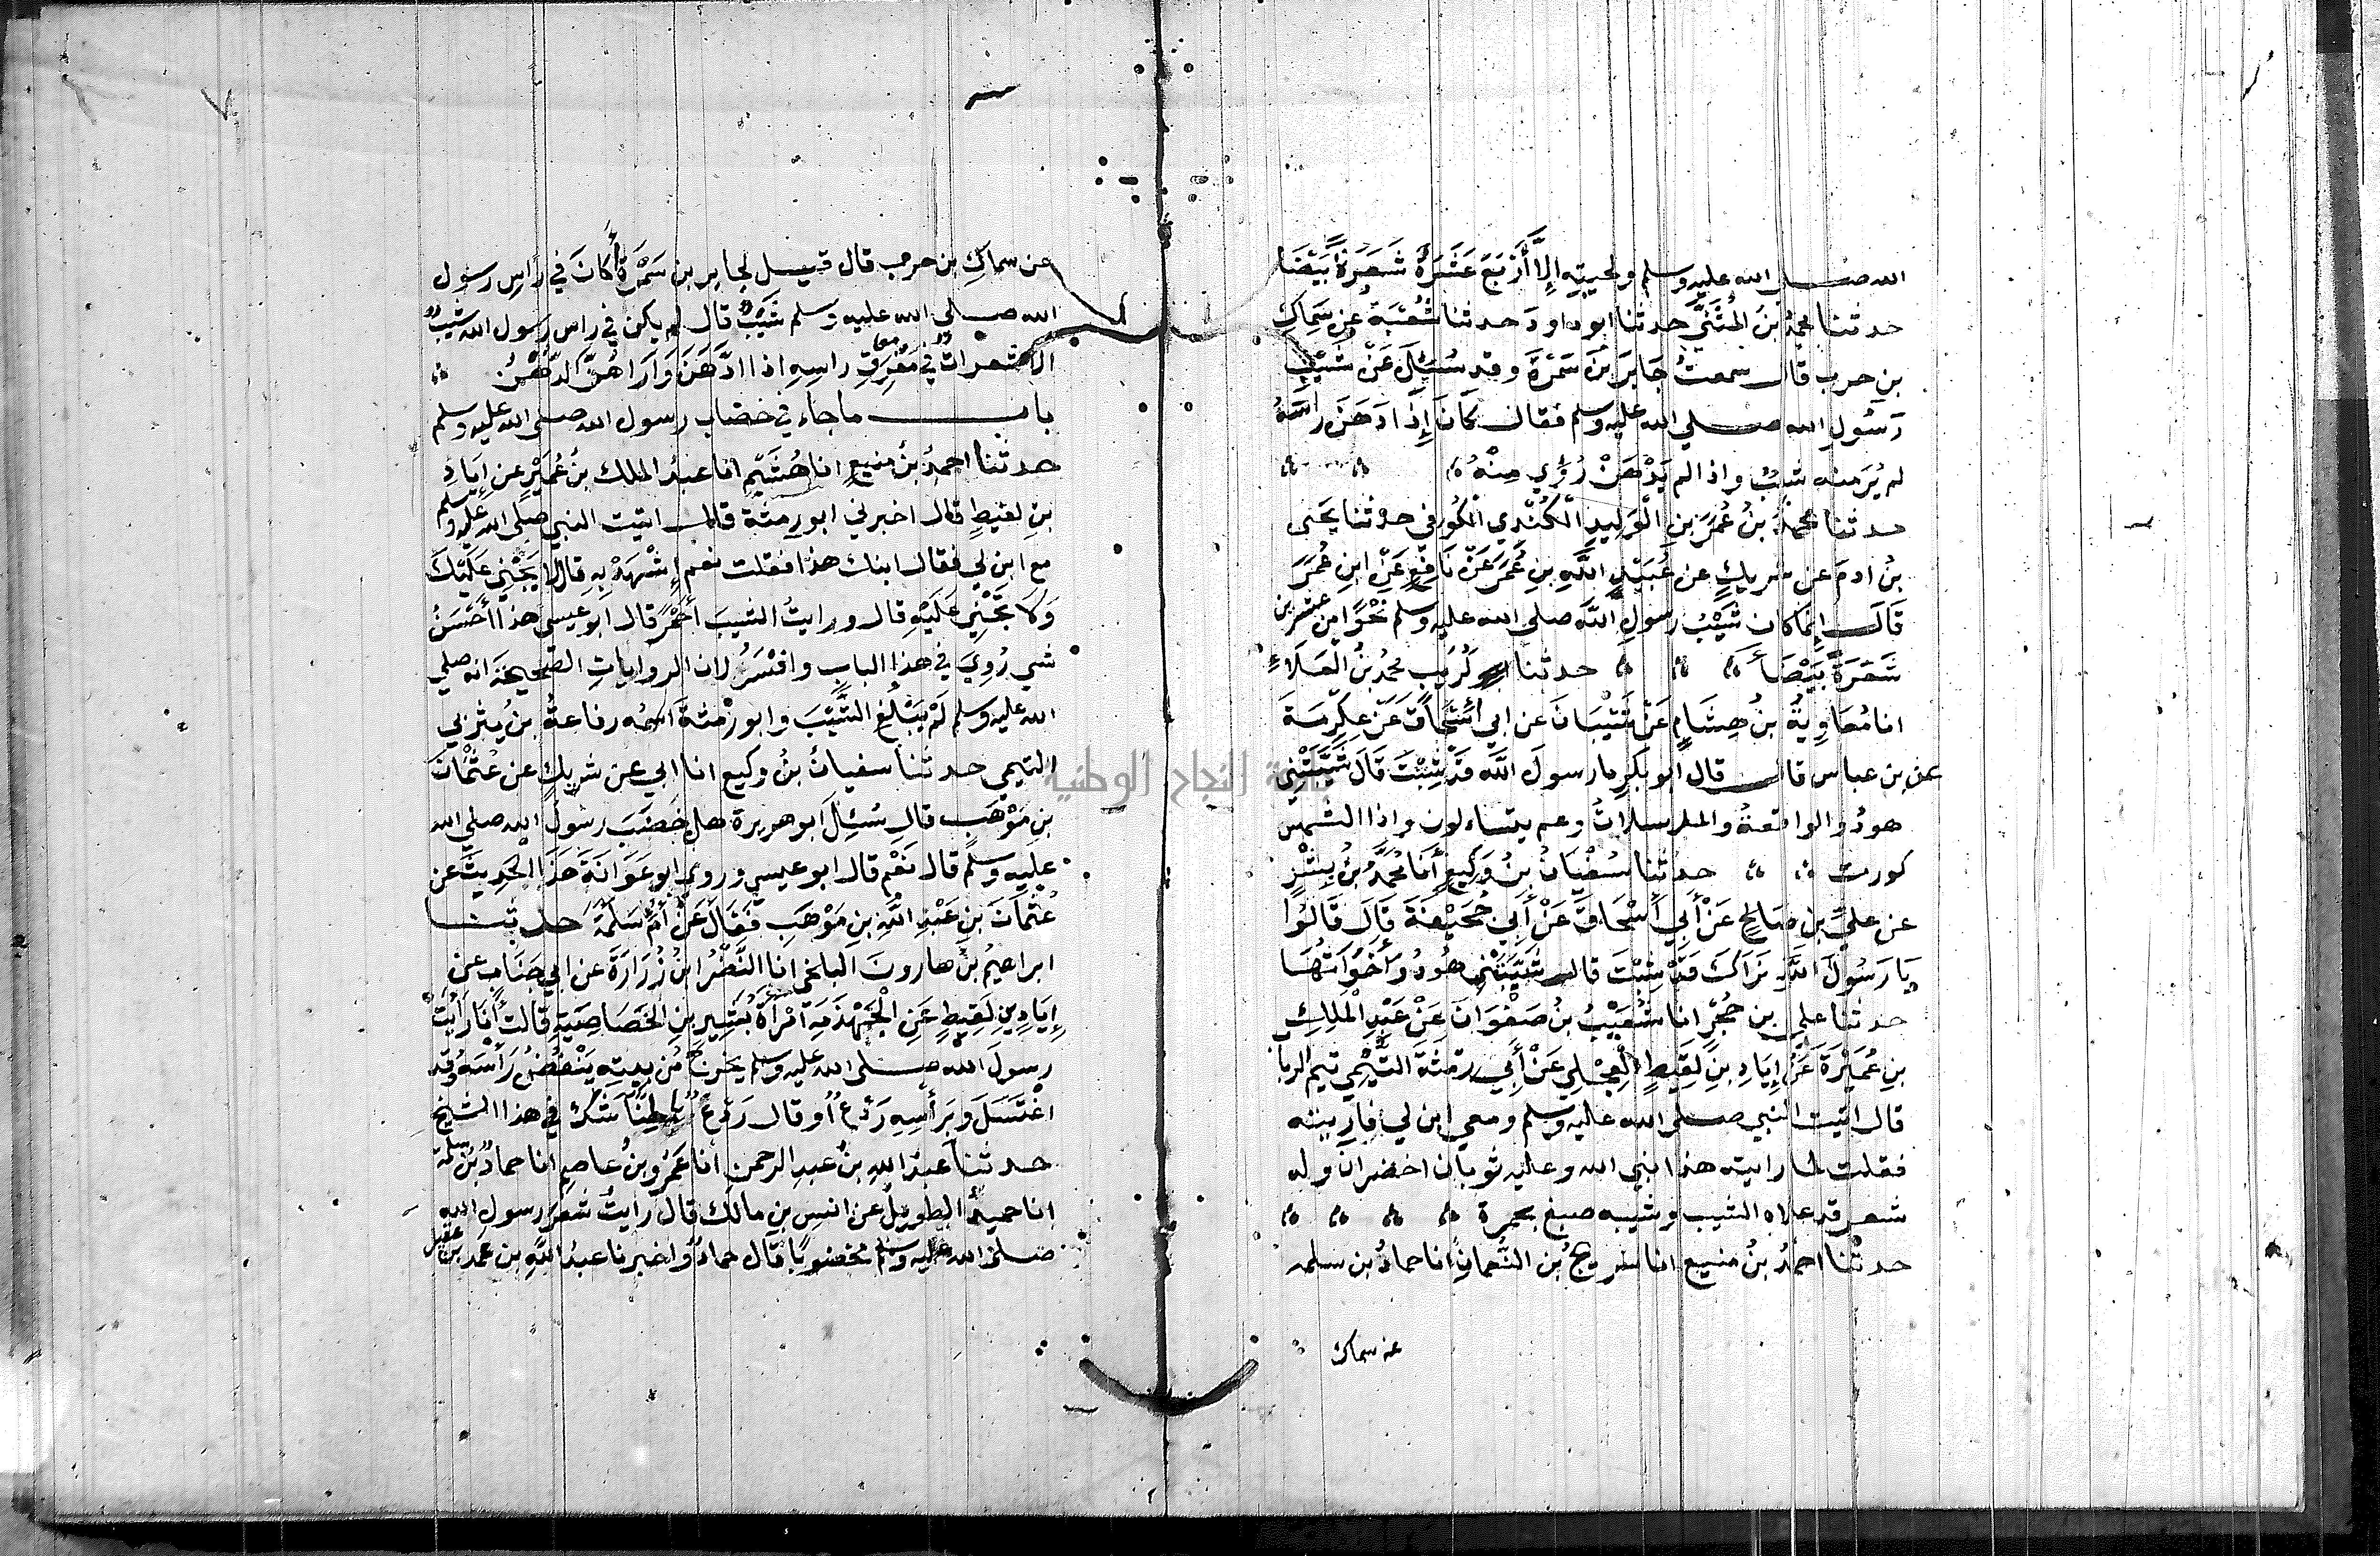 الله صلى الله عليه وسلم ولحيته إِلَّا أَرْبَعَ عَشَرَةَ شَعَرَةً بَيْضَا
حدثنا محمدُ بنُ المُثَنَّي حدثنا ابو داود حدثنا شُعْبَة عن سَمِاكِ
بنِ حرب قال سمعتُ جَابَر بْنَ سَمُرَةَ وقد سُئِلَ عَنْ شَيْبِ
رَسُولِ الله صلي الله عليه وسلم فقال كَانَ إِذَا ادَهَنَ رَاسَهُ
لم يُرَ منه شيبٌ واذا لم يَدْهَنْ رُؤِي مِنْهُ
حدثنا محمدُ بنُ عُمَرَ بنِ الْوَلِيدِ الْكُنْدِي الْكُورفي حدثنا يَحَيى
بنُ ادمَ عن شريكٍ عن عُبَيْدِ اللَّهِ بنِ عُمَرَ عَنْ نَافِعٍ عَنِ ابنِ عُمَرَ
قَالَ إِنمَا كان شَيْبُ رسولِ اللَّهَ صلى الله عليه وسلم نَحْوًا من عشرين
شَعَرَةً بَيْضَأَ حدثنا ابو كُرَيب محمدُ بنُ الْعَلَاءِ
انا مُعَاوِيةُ بنُ هِشَامٍ عَنْ شَيْبَانَ عن ابي أسْحَاقَ عَنْ عِكرِمَةَ
عن بن عباس قال قال ابو بكرٍ يا رسولَ اللَّه قَدْ شِبْتَ قَالَ شَيَّبَتْنِي
هودُ والواقعةُ والمرسلاتُ وعم يتساءلون واذا الشمس
كورت حدثنا سُفْيَانُ بنُ وَكِيعٍ أَنَا مُحمَّدُ بنُ بِشْرٍ
عن عليِّ بنِ صَالحٍ عَنْ أَبي أَسْحَاقَ عَنْ أَبِي جُحَيْفَةَ قَالَ قَالُوا
يَا رَسُولَ اللَّهِ نَرَاكَ قَدْ شِبْتَ قال شَيَّبَتْنِي هُودُ وَأَخَوَاتُهَا
حدثنا علي بن حُجْرٍ انا شُعَيْبُ بنُ صَفْوَانَ عَنْ عَبْدِ الْمَلِكِ
بنِ عُمَيْرَةَ عَنْ إِيَادِ بنِ لَقِيطٍ الْعِجْلِي عَنْ أَبِي رِمْثَةَ التَّيْمِي تيم الربا
قال اتيت النبي صلى الله عليه وسلم ومعي ابن لي فاريته
فقلت لما رايته هذا نبي الله وعليه ثوبان اخضران وله
شعر قد علاه الشيب وشيبه صبغ بحمرة
حدثنا احمدُ بنُ منيع انا سريجُ بنُ النُّعمانِ انا حمادُ بن سلمه
عن سماك
عن سماكِ بن حرب قال قيل لجابر بن سَمُرَةَ أَكَانَ في رَأسِ رسول
الله صلي الله عليه وسلم شَيْبٌ قال لم يكن في راس رسول الله شيبٌ
الا شعراتٌ في مَفْرِقِ راسِهِ اذا ادَّهَنَ وَارَاهُنَّ الدُّهْنُ
باب ما جاء في خضاب رسول الله صلى الله عليه وسلم
حدثنا احمدُ بنُ منيعٍ انا هُشَيْم انا عبدُ الملك بنُ عُمَيْرٍ عن إِيَادِ
بنِ لقيطٍ قال اخبرني ابو رمثة قال اتيت النبي صلى الله عليه وسلم
مع ابن لي فقال ابنك هذا فقلت نعم إِشْهَدْ بِهِ قال لا يَجْنِي عَلَيْكَ
وَلَا تَجْنِي عَلَيْهِ قال ورايتُ الشيبَ أَحْمَرَ قال ابو عيسى هذا أَحْسَنُ
شي رُوِيَ في هذا البابِ وافْسَرُ لان الرواياتِ الصَّحيحَة انه صلي
الله عليه وسلم لَمْ يَبْلُغِ الشَّيْبَ وابو رِمْثةَ اسمُه رفاعةُ بنُ يثربي
التيمي حدثنا سفيانُ بنُ وكيع انا ابي عن شريكٍ عن عُثْمَانَ
بنِ مَوْهَبِ قال سُئِلَ ابو هريرة هل خَضَبَ رسولُ الله صلي الله
عليه وسلم قال نَعْم قال ابو عيسي وروي ابو عَوَانَةَ هَذَا الحَدِيثَ عن
عُثمَانَ بنِ عَبْدِ اللَّهِ بنِ مَوْهَبِ فَقَالَ عَنْ أُمِّ سَلَمَةَ حدثنا
ابراهيمُ بنُ هارونَ البلخي انا النَّضْرُ ابنُ زُرَارَةَ عن ابي جَنَابٍ عن
إِيَادِ بنِ لَقِيطٍ عَنِ الْجَهْذَمَةِ امْرَأَة بَشِيرِ بنِ الخَصَاصِيَةِ قالت أَنَا رَأَيْتُ
رسولَ الله صلى الله عليه وسلم يخرجُ من بيته يَنْفُضُ رَأْسَهُ وقد
اغْتَسَلَ وبَرأسِهِ رَدْعٌ أو قال رَدْغٌ شَكَّ في هذا الشيخ
حدثنا عبدُ اللهِ بنُ عبدِ الرحمنِ انا عَمْرُو بنُ عاصمٍ انا حمادُ بنُ سلمة
انا حميدُ الطويلُ عن انسِ بنِ مالك قال رايتُ شعَرَ رسول الله
صلى الله عليه وسلم مخضوبًا قال حمادٌ واخبرنا عبدُ اللَّهِ بن محمد بن عقيل